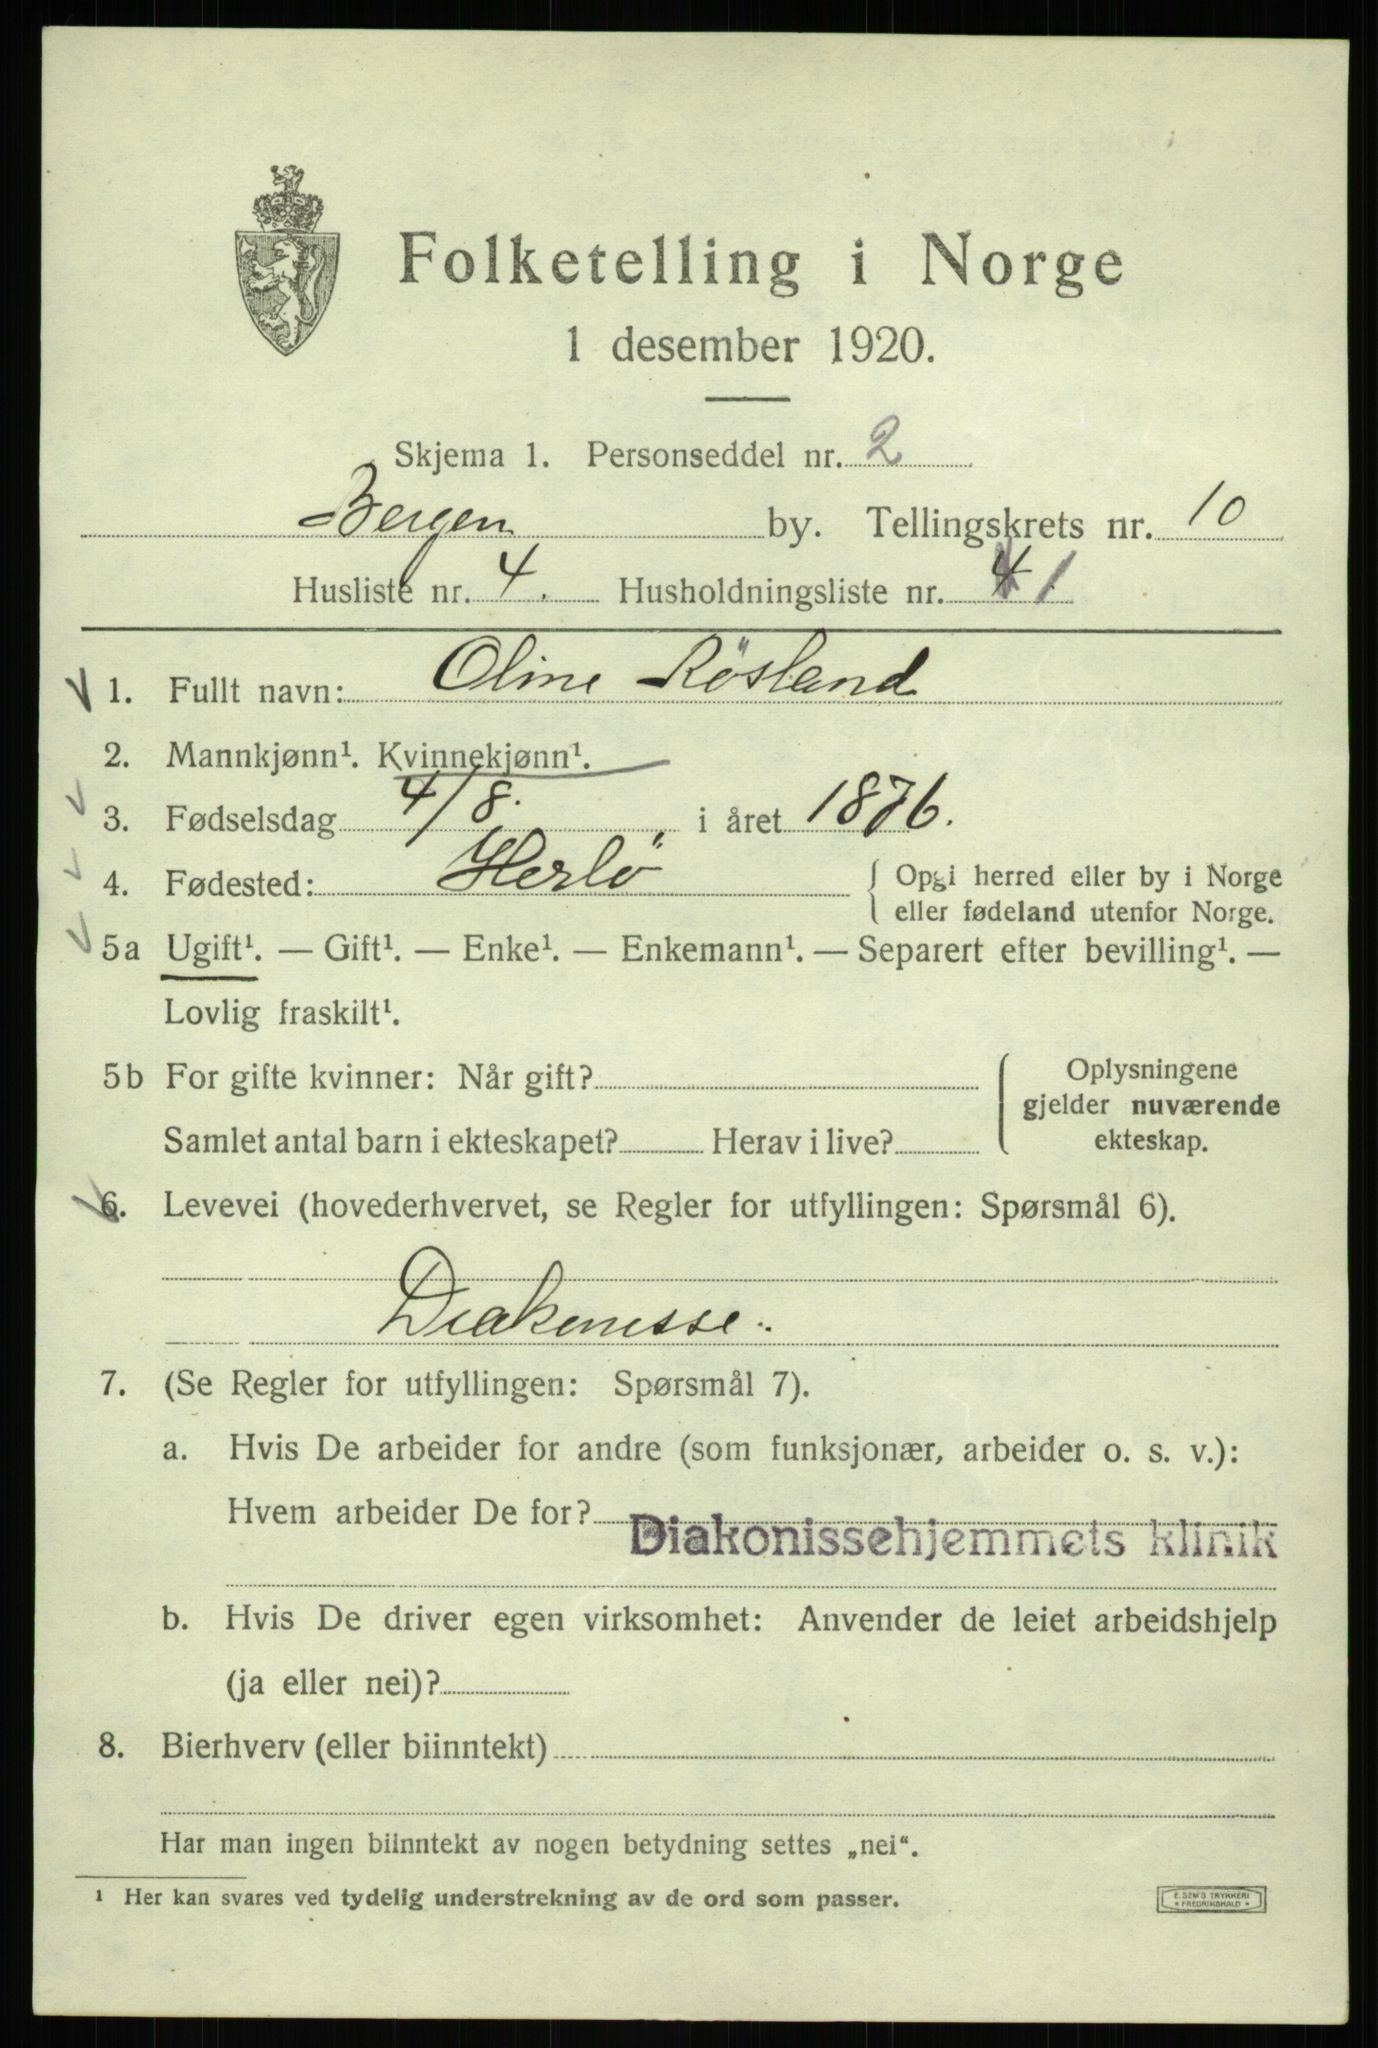 Folketelling i Norge
1 desember 1920.
Skjema 1. Personseddel nr. 2
Bergen by. Tellingskrets nr. 10
Husliste nr. 4. Husholdningsliste nr. 4 1
1. Fullt navn: Oline Rösland
2. Mannkjønn¹. Kvinnekjønn¹.
3. Fødselsdag 4/8. i året 1876.
4. Fødested: Herlö { Opgi herred eller by i Norge
eller fødeland utenfor Norge.
5a Ugift¹. — Gift¹. — Enke¹. — Enkemann¹. — Separert efter bevilling¹. —
Lovlig fraskilt¹.
5b For gifte kvinner: Når gift? Oplysningene
gjelder nuværende
Samlet antal barn i ekteskapet? Herav i live? ekteskap.
6. Levevei (hovederhvervet, se Regler for utfyllingen: Spørsmål 6).
Diakonisse.
7. (Se Regler for utfyllingen: Spørsmål 7).
a. Hvis De arbeider for andre (som funksjonær, arbeider o. s. v.):
Hvem arbeider De for? Diakonissehjemmets klinik
b. Hvis De driver egen virksomhet: Anvender de leiet arbeidshjelp
(ja eller nei)?
8. Bierhverv (eller biinntekt)
Har man ingen biinntekt av nogen betydning settes „nei".
¹ Her kan svares ved tydelig understrekning av de ord som passer.
E. SEM'S TRYKKERI
* FREDRIKSHALD *